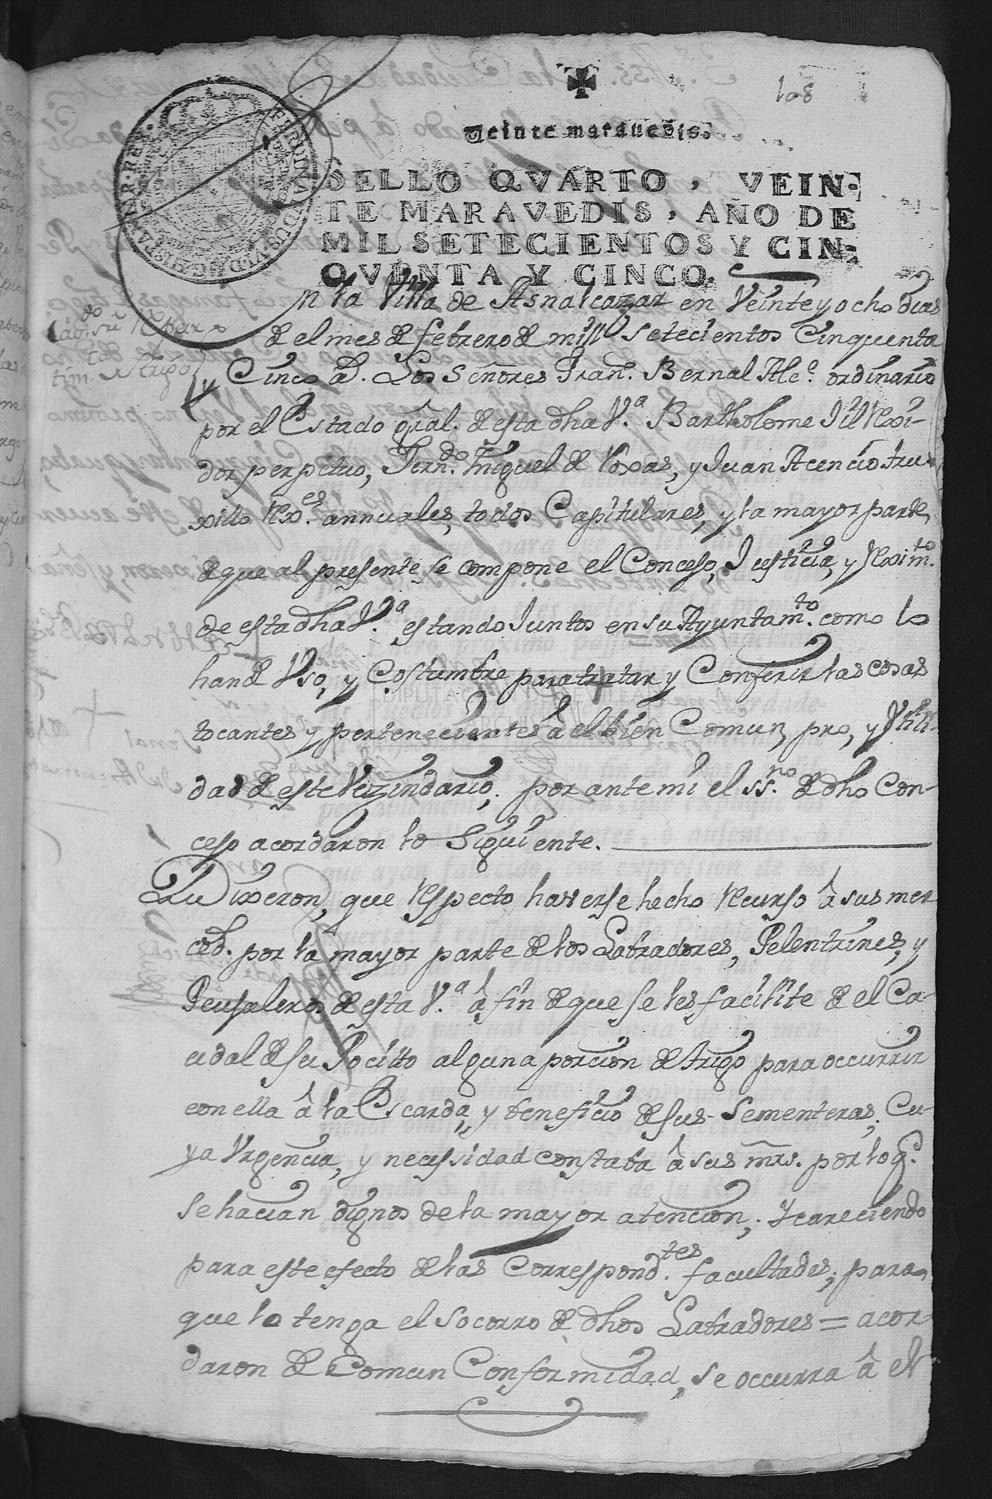 108
Veinte maravedis.
SELLO QVARTO, VEIN-
TE MARAVEDIS, AÑO DE
MIL SETECIENTOS Y CIN-
QVENTA Y CINCO.
FERDINANDUS VI D.G. HISPANIAR. REX
En la Villa de Asnalcazar en Veinte y ocho dias
de el mes de febrero de mill setecientos Cinquenta
y Cinco a.s Los Señores Fran.co Bernal Alc.e ordinario
por el Estado gral. de esta dha V.a Bartholome Gil Rexi-
dor perpetuo, Fern.do Miguel de Roxas, y Juan Acencio tru-
xillo Rex.es annuales, todos Capitulares, y la mayor parte
de que al presente se compone el Concejo, Justicia, y Rexim.to
de esta dha V.a estando Juntos en su Ayuntam.to como lo
han de Uso, y Costumbre para tratar y Conferir las cosas
tocantes y pertenecientes â el bien Comun, pro, y Utili-
dad de este Vezindario, por ante mi el ss.no de dho Con-
cejo acordaron lo Siguiente.
Dixeron, que Respecto haverse hecho Recurso â sus mer
ced.s por la mayor parte de los Labradores, Pelentrines, y
Peujaleros de esta V.a â fin de que se les facilite de el Ca-
udal de su Pocitto alguna porcion de trigo para occurrir
con ella â la Escarda, y beneficio de sus Sementeras, Cu-
ya Urgencia, y necessidad constaba â sus mrs. por lo q.e
se hacian dignos de la mayor atencion; Y careciendo
para este efecto de las Correspond.tes facultades; para
que lo tenga el socorro de dhos Labradores = acor-
daron de Comun Conformidad, se occurra â el